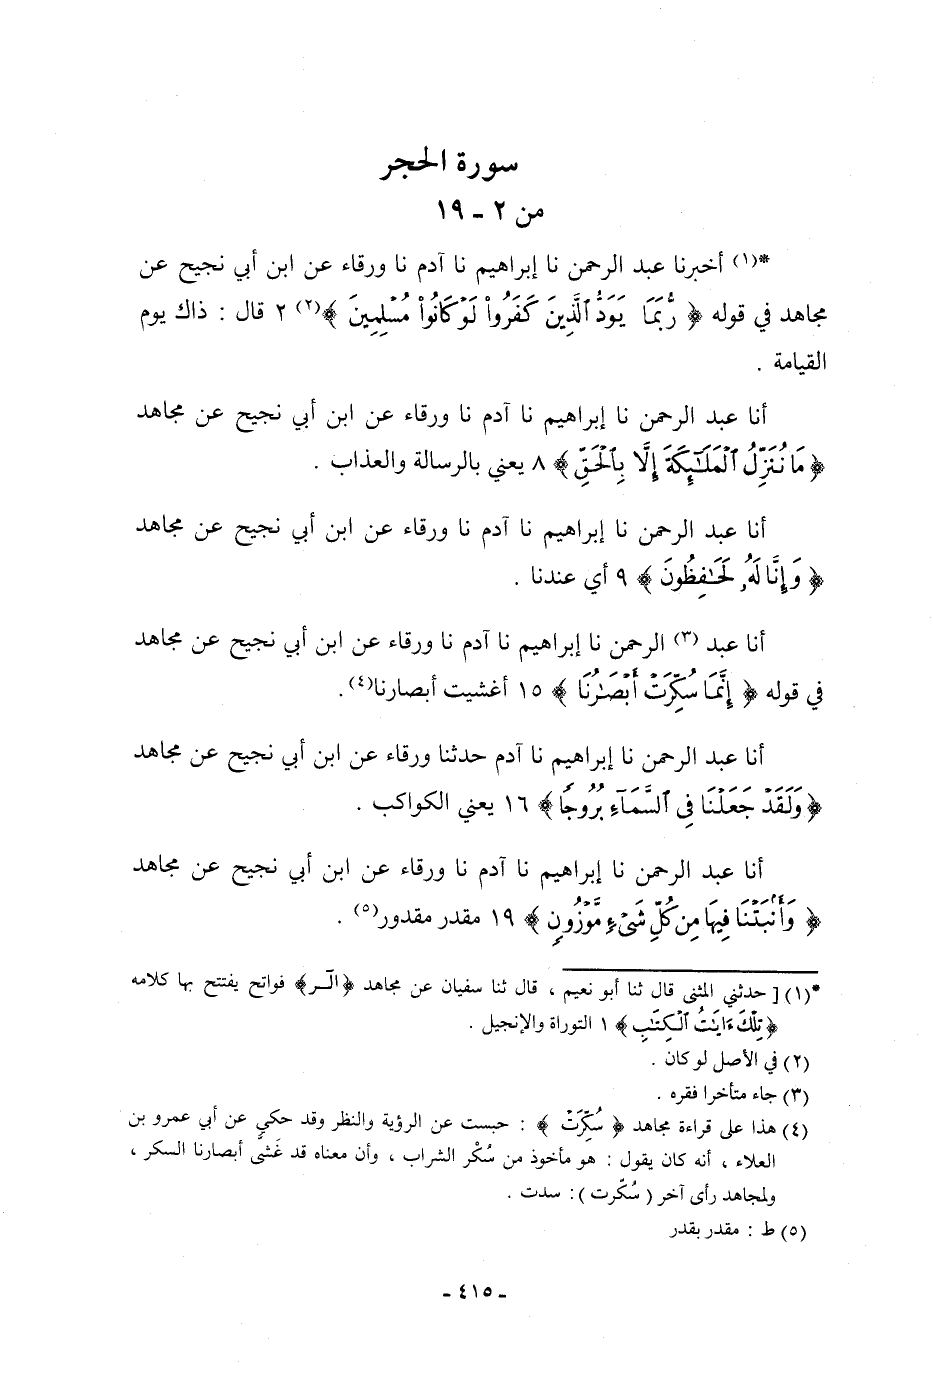 سورة الحجر
من ٢ ـ ١٩
*(١) أخبرنا عبد الرحمن نا إبراهيم نا آدم نا ورقاء عن ابن أبي نجيح عن
مجاهد في قوله ﴿ رُّبَمَا يَوَدُّ ٱلَّذِينَ كَفَرُواْ لَوْكَانُواْ مُسْلِمِينَ ﴾(٢) ٢ قال : ذاك يوم
القيامة .
أنا عبد الرحمن نا إبراهيم نا آدم نا ورقاء عن ابن أبي نجيح عن مجاهد
﴿ مَا نُنَزِّلُ ٱلْمَلَـٰٓئِكَةَ إِلَّا بِٱلْحَقِّ ﴾ ٨ يعني بالرسالة والعذاب .
أنا عبد الرحمن نا إبراهيم نا آدم نا ورقاء عن ابن أبي نجيح عن مجاهد
﴿ وَإِنَّا لَهُۥ لَحَـٰفِظُونَ ﴾ ٩ أي عندنا .
أنا عبد (٣) الرحمن نا إبراهيم نا آدم نا ورقاء عن ابن أبي نجيح عن مجاهد
في قوله ﴿ إِنَّمَا سُكِّرَتْ أَبْصَـٰرُنَا ﴾ ١٥ أغشيت أبصارنا(٤).
أنا عبد الرحمن نا إبراهيم نا آدم حدثنا ورقاء عن ابن أبي نجيح عن مجاهد
﴿ وَلَقَدْ جَعَلْنَا فِى ٱلسَّمَآءِ بُرُوجًا ﴾ ١٦ يعني الكواكب .
أنا عبد الرحمن نا إبراهيم نا آدم نا ورقاء عن ابن أبي نجيح عن مجاهد
﴿ وَأَنۢبَتْنَا فِيهَا مِن كُلِّ شَىْءٍ مَّوْزُونٍ ﴾ ١٩ مقدر مقدور(٥) .
*(١) [ حدثني المثنى قال ثنا أبو نعيم ، قال ثنا سفيان عن مجاهد ﴿الٓـر﴾ فواتح يفتتح بها كلامه
﴿تِلْكَ ءَايَـٰتُ ٱلْكِتَـٰبِ ﴾ ١ التوراة والإنجيل .
(٢) في الأصل لو كان .
(٣) جاء متأخرا فقره .
(٤) هذا على قراءة مجاهد ﴿ سُكِّرَتْ ﴾ : حبست عن الرؤية والنظر وقد حكي عن أبي عمرو بن
العلاء ، أنه كان يقول : هو مأخوذ من سُكْر الشراب ، وأن معناه قد غَشَّى أبصارنا السكر ،
ولمجاهد رأى آخر ( سُكّرت ) : سدت .
(٥) ط : مقدر بقدر
ـ ٤١٥ ـ